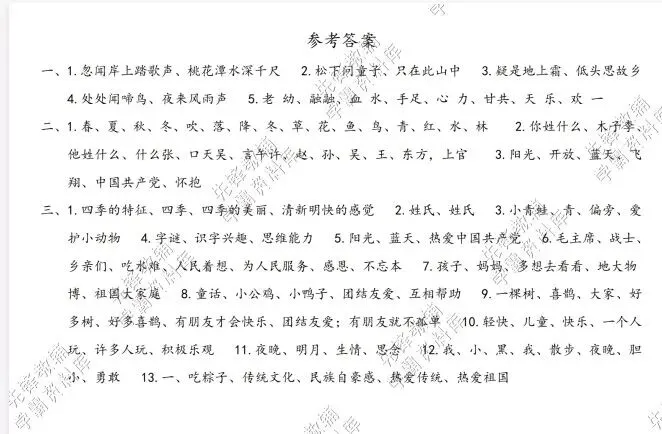 参考答案
一、1.忽闻岸上踏歌声、桃花潭水深千尺 2.松下问童子、只在此山中 3.疑是地上霜、低头思故乡
4.处处闻啼鸟、夜来风雨声 5.老 幼、融融、血 水、手足、心 力、甘共、天 乐、欢 一
二、1.春、夏、秋、冬、吹、落、降、冬、草、花、鱼、鸟、青、红、水、林 2.你姓什么、木子李、
他姓什么、什么张、口天吴、言午许、赵、孙、吴、王、东方,上官 3.阳光、开放、蓝天、飞
翔、中国共产党、怀抱
三、1.四季的特征、四季、四季的美丽、清新明快的感觉 2.姓氏、姓氏 3.小青蛙、青、偏旁、爱
护小动物 4.字谜、识字兴趣、思维能力 5.阳光、蓝天、热爱中国共产党 6.毛主席、战士、
乡亲们、吃水难、人民着想、为人民服务、感恩、不忘本 7.孩子、妈妈、多想去看看、地大物
博、祖国大家庭 8.童话、小公鸡、小鸭子、团结友爱、互相帮助 9.一棵树、喜鹊、大家、好
多树、好多喜鹊、有朋友才会快乐、团结友爱;有朋友就不孤单 10.轻快、儿童、快乐、一个人
玩、许多人玩、积极乐观 11.夜晚、明月、生情、思念 12.我、小、黑、我、散步、夜晚、胆
小、勇敢 13.一、吃粽子、传统文化、民族自豪感、热爱传统、热爱祖国
先锋教辅
学霸资料库
先锋教辅
学霸资料库
先锋教辅
学霸资料库
先锋教辅
学霸资料库